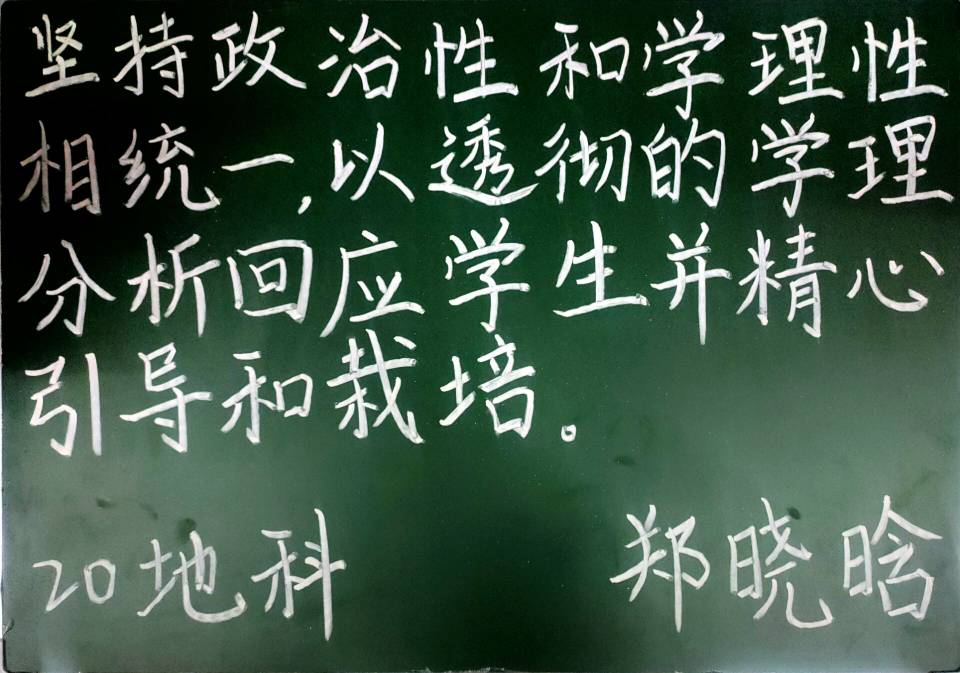 坚持政治性和学理性
相统一,以透彻的学理
分析回应学生并精心
引导和栽培。
20地科 郑晓晗